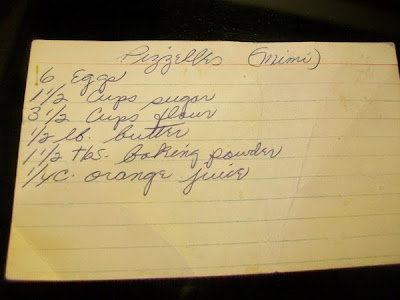 Pizzelles (Mimi)
6 Eggs
1 1/2 Cups sugar
3 1/2 Cups flour
1/2 lb. butter
1 1/2 tbs. baking powder
1/4 C. orange juice